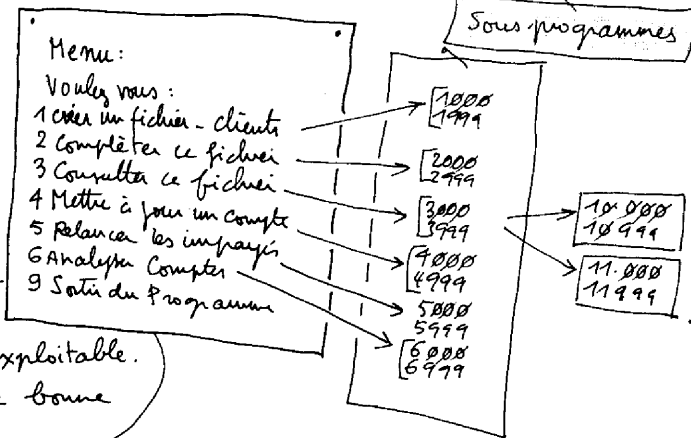 Sous programmes
Menu:
Voulez vous :
1 créer un fichier - clients
2 Compléter ce fichier
3 Consulter ce fichier
4 Mettre à jour un compte
5 Relancer les impayés
6 Analyser Comptes
9 Sortir du Programme
1000
1999
2000
2999
3000
3999
4000
4999
5000
5999
6000
6999
10.000
10999
11.000
11999
xploitable.
bonne